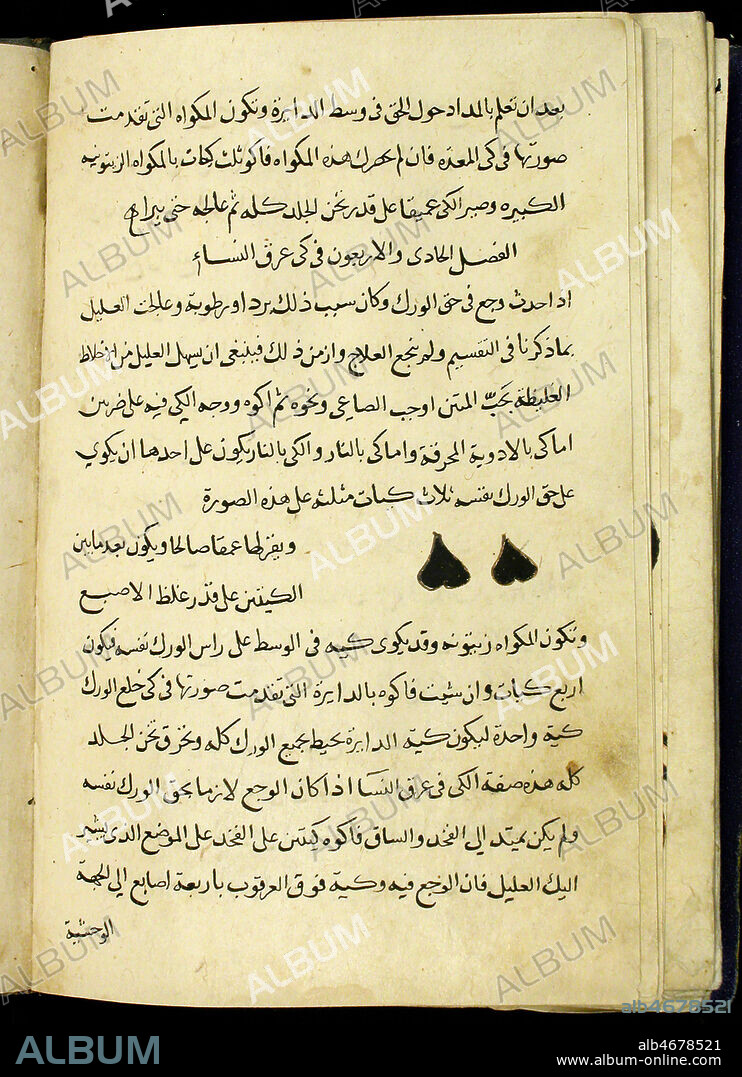 بعد ان تعلم بالمداد حول الحق فى وسط الدايرة وتكون المكواه التى تقدمت
صورتها فى كى المعده فان لم يحضرك هذه المكواه فاكو ثلث كيات بالمكواه الزيتونيه
الكبيره وصير الكى عميقا على قدر ثخن الجلد كله ثم عالجه حتى يبرا
الفصل الحادى والاربعون فى كى عرق النساء
اذا حدث وجع فى حق الورك وكان سبب ذلك برد او رطوبة وعالجت العليل
بماذكرنا فى التقسيم ولم ينجع العلاج وازمن ذلك فينبغى ان يسهل العليل من الاخلاط
الغليظة بحَبّ المنتن او حب الصناعى ونحوه ثم اكوه ووجه الكى فيه على ضربين
اما كى بالادوية المحرقة واما كى بالنار والكى بالنار يكون على احدها ان يكوي
على حق الورك نفسه ثلاث كيات مثلثه على هذه الصورة
ويفرلها عمقا صالحا ويكون بعد مابين
الكيتين على قدر غلظ الاصبع
وتكون المكواه زيتونه وقد يكوى كيه فى الوسط على راس الورك نفسه فيكون
اربع كيات وان شيت فاكوه بالدايرة التى تقدمت صورتها فى كى خلع الورك
كية واحدة ليكون كية الدايرة يحيط بجميع الورك كله وتخرق ثخن الجلد
كله هذه صفة الكى فى عرق النسا اذا كان الوجع لازما بحق الورك نفسه
ولم يكن يمتد الي الفخد والساق فاكوه كيتين على الفخد على الموضع الدى يشير
اليك العليل فان الوجع فيه وكية فوق العرقوب باربعة اصابع الى الجهة
الوحشية
ALBUM
alb4678521
alb4678521
www.album-online.com